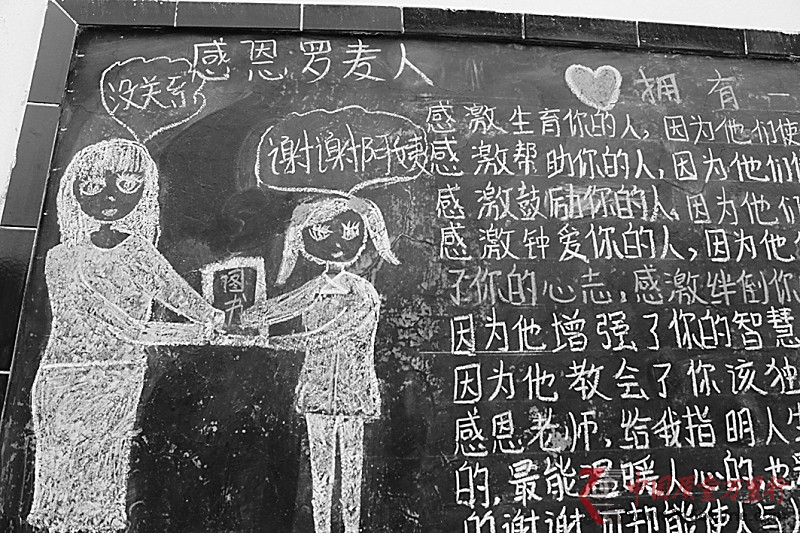 感恩罗麦人
没关系
谢谢阿姨
图书
拥有一
感激生育你的人，因为他们使
感激帮助你的人，因为他们
感激鼓励你的人，因为他们
感激钟爱你的人，因为他
了你的心志，感激绊倒你
因为他增强了你的智慧
因为他教会了你该独
感恩老师，给我指明人生
的，最能温暖人心的也
的谢谢可却能使人与人